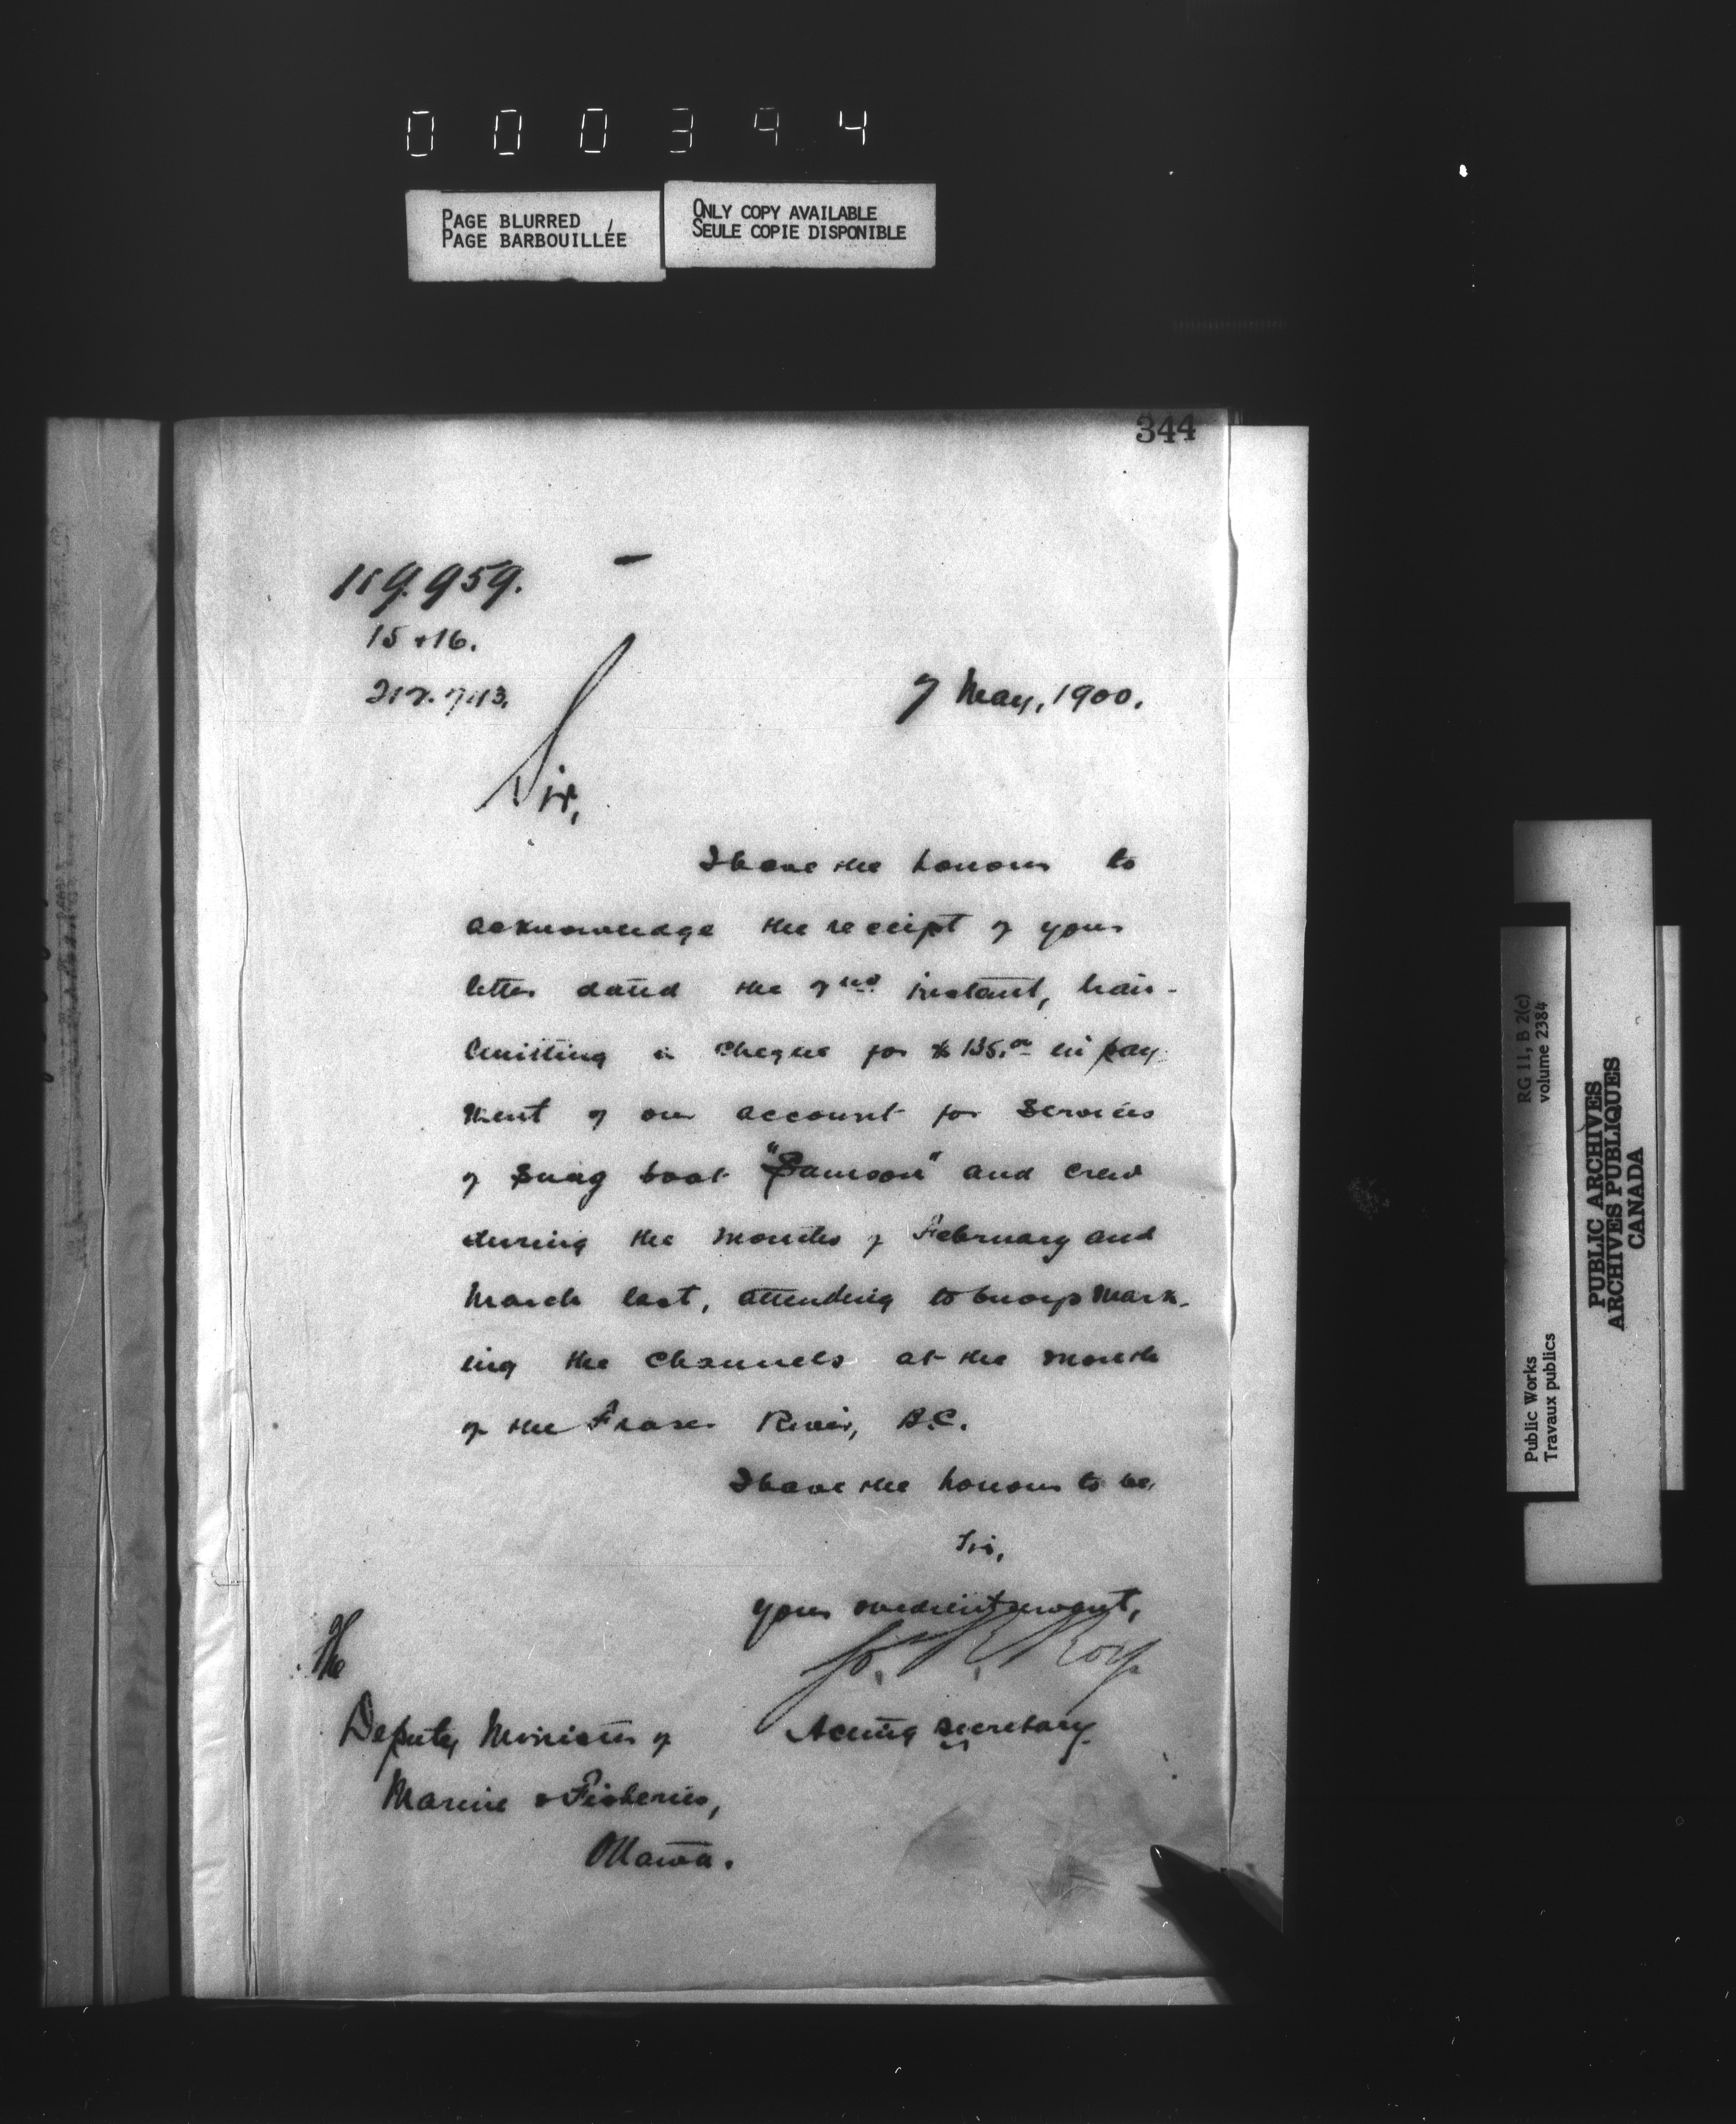 000394
PAGE BLURRED
PAGE BARBOUILLÉE
ONLY COPY AVAILABLE
SEULE COPIE DISPONIBLE
344
119.959.
15 + 16.
7 May, 1900.
Sir,
I have the honour to
acknowledge the receipt of your
letter dated the 2nd instant, trans-
mitting a cheque for $135.00 in pay-
ment of our account for services
of Snag boat "Samson" and crew
during the months of February and
March last, attending to buoys mark-
ing the Channels at the mouth
of the Fraser River, B.C.
I have the honour to be,
Sir,
Your obedient servant,
Jos. R. Roy
Acting Secretary.
The
Deputy Minister of
Marine & Fisheries,
Ottawa.
RG 11, B 2(c)
volume 2384
Public Works
Travaux publics
PUBLIC ARCHIVES
ARCHIVES PUBLIQUES
CANADA